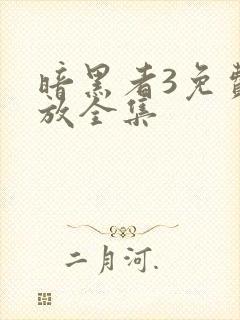 暗黑者3免费
放全集
二月河.